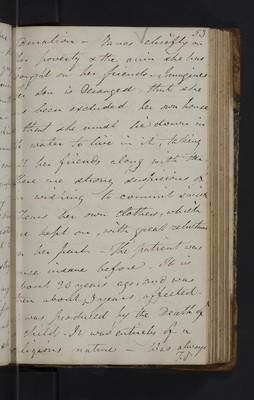 53
Duration - Raves chiefly on
her poverty & the ruin she has
brought on her friends - Imagines
her son is Deranged that she
has been excluded her own house
& that she must lie down in
the water to live in it, taking
all her friends along with her
There are strong suspicions of
her wishing to commit suicide
Tears her own clothes, which
are kept on, with great reluctance
on her part - The patient was
once insane before. It is
about 20 years ago, and was
then about 3 years affected.
was produced by the Death of a
child - It was entirely of a
religious nature - Was always